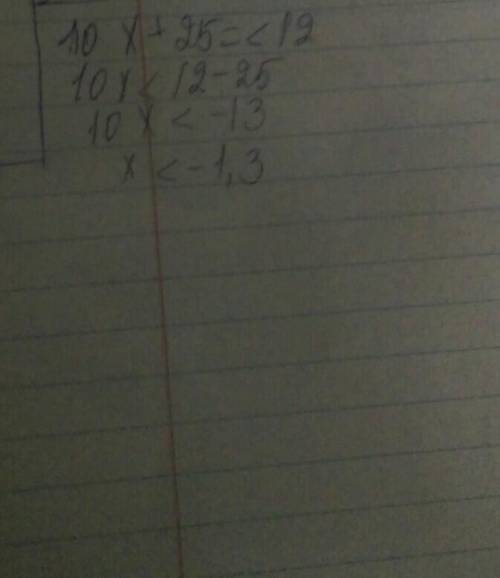 10 x + 25 = < 12
10 x < 12 - 25
10 x < -13
x < -1,3